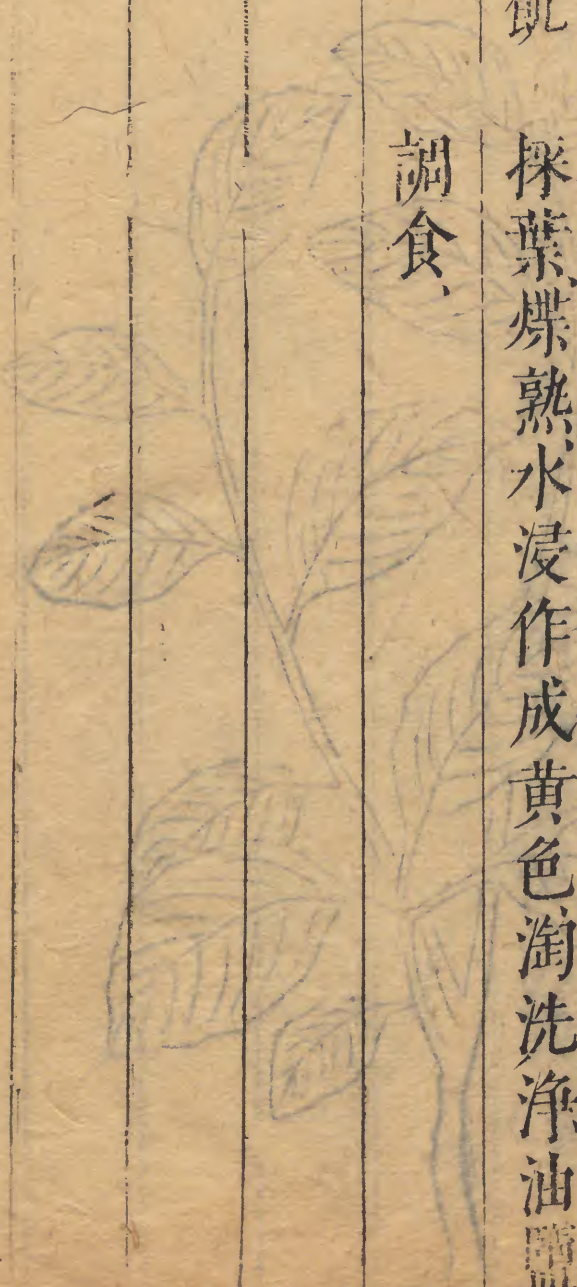 飢
採葉、煠熟、水浸作成黃色淘洗淨、油
調食、